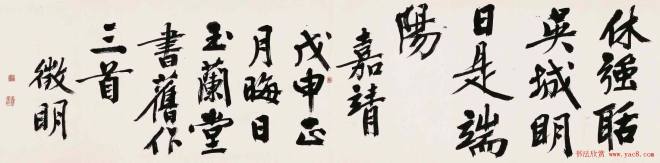 休强聒
吴城明
日是端
陽
嘉靖
戊申正
月晦日
玉蘭堂
書舊作
三首
徵明
书法欣赏
www.yac8.com